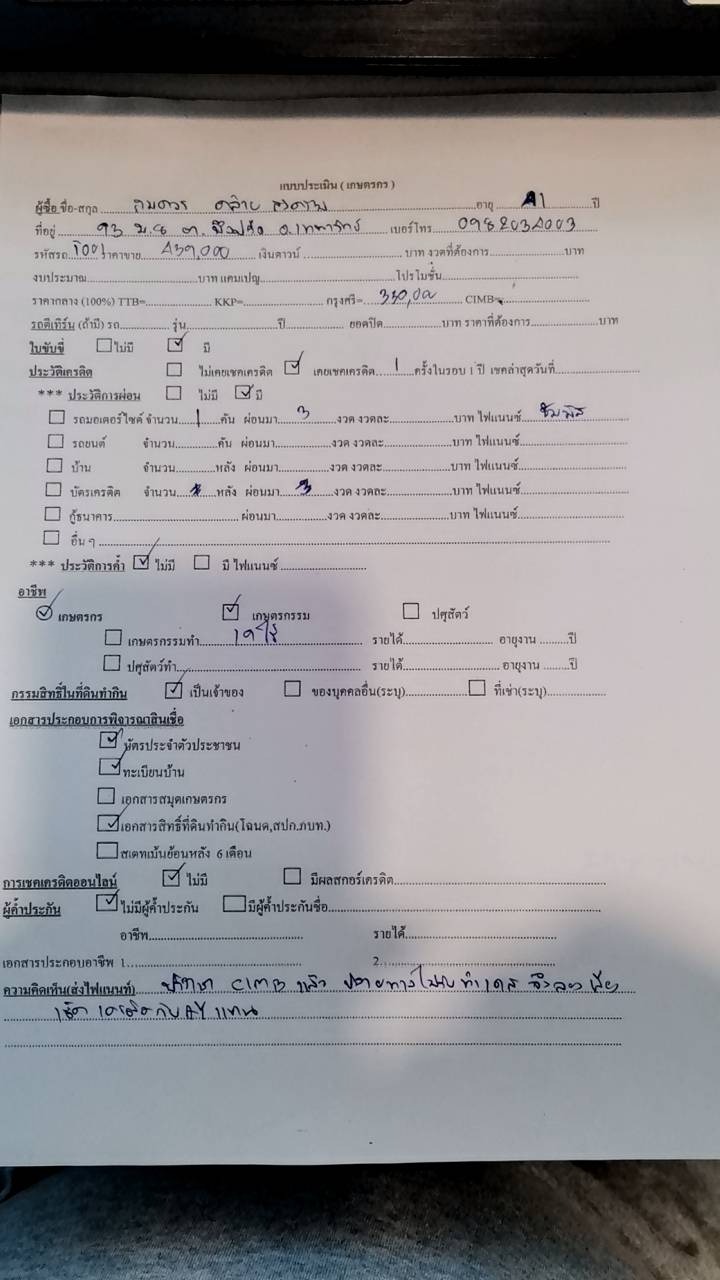 แบบประเมิน ( เกษตรกร )
ผู้ซื้อ ชื่อ-สกุล สมควร คล้าย อายุ 41 ปี
ที่อยู่ 93 ม.8 ต. อ.เทพารักษ์ เบอร์โทร 0982034003
รหัสรถ T001 ราคาขาย 439,000 เงินดาวน์ บาท งวดที่ต้องการ บาท
งบประมาณ บาท แคมเปญ โปรโมชั่น
ราคากลาง (100%) TTB= KKP= กรุงศรี= 330,000 CIMB=
รถตีเทิร์น (ถ้ามี) รถ รุ่น ปี ยอดปิด บาท ราคาที่ต้องการ บาท
ใบขับขี่ ไม่มี มี
ประวัติเครดิต ไม่เคยเชคเครดิต เคยเชคเครดิต 1 ครั้งในรอบ 1 ปี เชคล่าสุดวันที่
*** ประวัติการผ่อน ไม่มี มี
รถมอเตอร์ไซด์ จำนวน 1 คัน ผ่อนมา 3 งวด งวดละ บาท ไฟแนนซ์
รถยนต์ จำนวน คัน ผ่อนมา งวด งวดละ บาท ไฟแนนซ์
บ้าน จำนวน หลัง ผ่อนมา งวด งวดละ บาท ไฟแนนซ์
บัตรเครดิต จำนวน หลัง ผ่อนมา งวด งวดละ บาท ไฟแนนซ์
กู้ธนาคาร ผ่อนมา งวด งวดละ บาท ไฟแนนซ์
อื่น ๆ
*** ประวัติการค้ำ ไม่มี มี ไฟแนนซ์
อาชีพ
เกษตรกร เกษตรกรรม ปศุสัตว์
เกษตรกรรมทำ รายได้ อายุงาน ปี
ปศุสัตว์ทำ รายได้ อายุงาน ปี
กรรมสิทธิ์ในที่ดินทำกิน เป็นเจ้าของ ของบุคคลอื่น(ระบุ) ที่เช่า(ระบุ)
เอกสารประกอบการพิจารณาสินเชื่อ
บัตรประจำตัวประชาชน
ทะเบียนบ้าน
เอกสารสมุดเกษตรกร
เอกสารสิทธิ์ที่ดินทำกิน(โฉนด,สปก.ภบท.)
สเตทเม้นย้อนหลัง 6 เดือน
การเชคเครดิตออนไลน์ ไม่มี มีผลสกอร์เครดิต
ผู้ค้ำประกัน ไม่มีผู้ค้ำประกัน มีผู้ค้ำประกันชื่อ
อาชีพ รายได้
เอกสารประกอบอาชีพ 1 2
ความคิดเห็น(ส่งไฟแนนท์) ปรึกษา CIMB แล้ว ปลายทางไม่รับทำเคส จึง
เช็คเครดิตกับ AY แทน